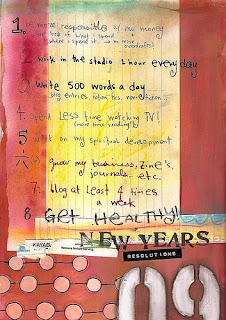 1. Be more responsible w/ my money
where I spend it → no more overdrafts!
2 work in the studio 1 hour every day
3 write 500 words a day
blog entries, fiction, non-fiction
4. spend less time watching TV!
(more time reading!)
5 work on my spiritual development
6 grow my business, zine's,
journals.. etc.
7. blog at least 4 times
a week
8 GET HEALTHY!
NEW YEARS
RESOLUTIONS
09